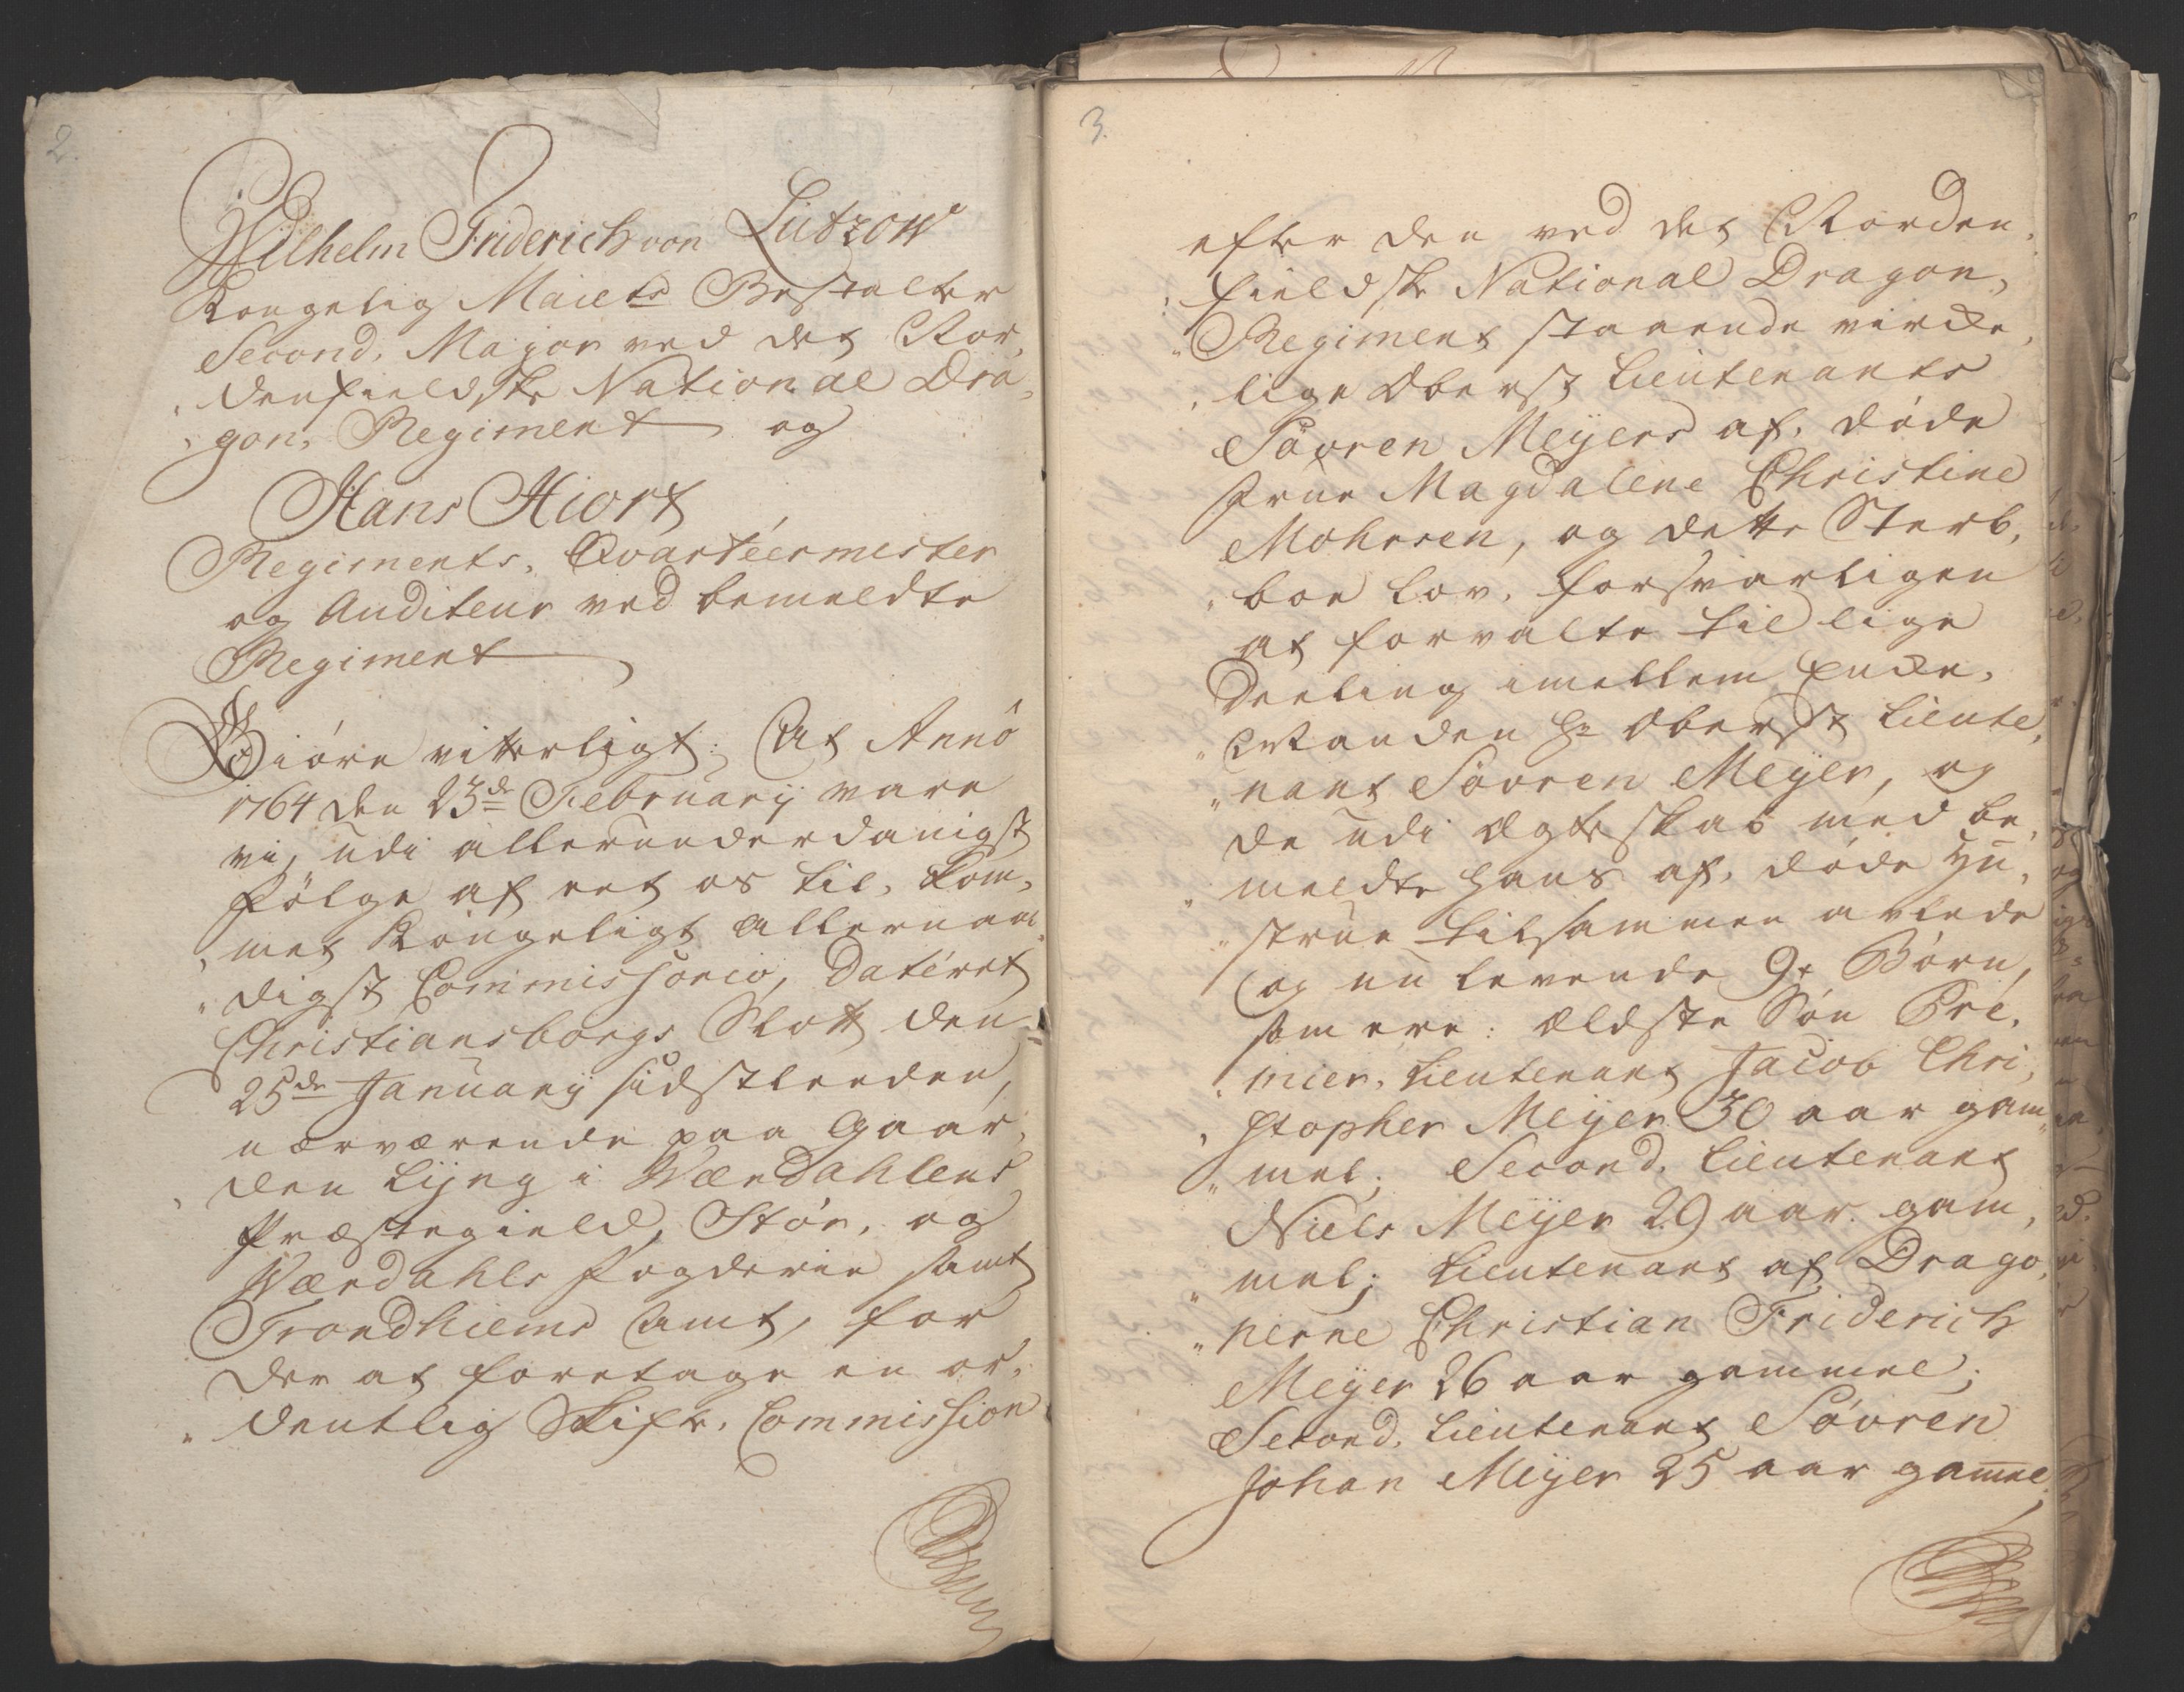 2.
Wilhelm Friderich von Lützow
Kongelig Maiets Bestalter
Second, Major ved det Nor,
denfieldske National Dra,
gon, Regiment og
Hans Hiort
Regiments, Qvarteermester
og Auditeur ved bemeldte
Regiment
Giöre vitterligt: At Anno
1764 den 23de February vare
vi, udi allerunderdanigst
fölge af eet os til, kom,
met Kongeligt allernaa,
digst Commissorio, dateret
Christiansborgs Slott den
25de January sidstleeden,
nærværende paa Gaar,
den Lyng i Værdahlens
Præstegield, Stör, og
Værdahls fogderie samt
Trondhiems Amt, for
der at foretage en or,
dentlig Skifte, Commission
3.
efter den ved det Norden,
fieldske National Dragon,
Regiment staaende virke,
lige Oberst Lieutenants
Sövren Meyers af, döde
Frue Magdalene Christine
Mohrsen, og dette Sterb,
boe lov, forsvarligen
at forvalte til lige
Deeling imellem Enke,
Manden Hr Oberst Lieute,
nant Sövren Meyer, og
de udi Ægteskab med be,
meldte hans af, döde Hu,
strue tilsammen avlede
og nu levende 9 Börn,
som ere: Ældste Sön Pre,
mier, Lieutenant Jacob Chri,
stopher Meyer 30 aar gam,
mel; Second, Lieutenant
Niels Meyer 29 aar gam,
mel; Lieutenant af Drago,
nerne Christian Friderich
Meyer 26 aar gammel;
Second, Lieutenant Sövren
Johan Meyer 25 aar gamel;